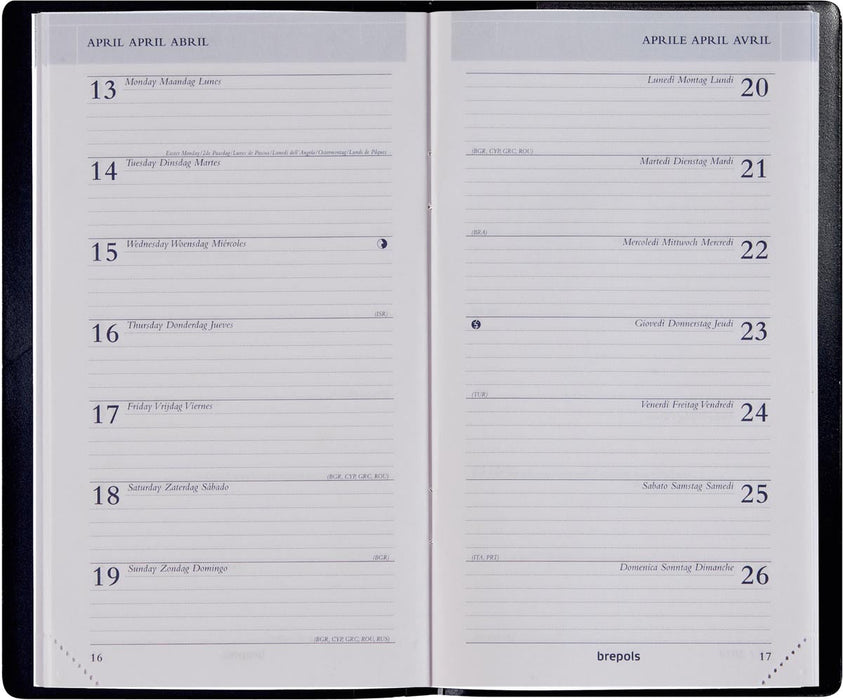 APRIL APRIL ABRIL
13 Monday Maandag Lunes
Easter Monday/2de Paasdag/Lunes de Pascua/Lunedì dell'Angelo/Ostermontag/Lundi de Pâques
14 Tuesday Dinsdag Martes
15 Wednesday Woensdag Miércoles
(ISR)
16 Thursday Donderdag Jueves
17 Friday Vrijdag Viernes
(BGR, CYP, GRC, ROU)
18 Saturday Zaterdag Sábado
(BGR)
19 Sunday Zondag Domingo
(BGR, CYP, GRC, ROU, RUS)
16
APRILE APRIL AVRIL
Lunedì Montag Lundi 20
(BGR, CYP, GRC, ROU)
Martedì Dienstag Mardi 21
(BRA)
Mercoledì Mittwoch Mercredi 22
Giovedì Donnerstag Jeudi 23
(TUR)
Venerdì Freitag Vendredi 24
Sabato Samstag Samedi 25
(ITA, PRT)
Domenica Sonntag Dimanche 26
brepols 17